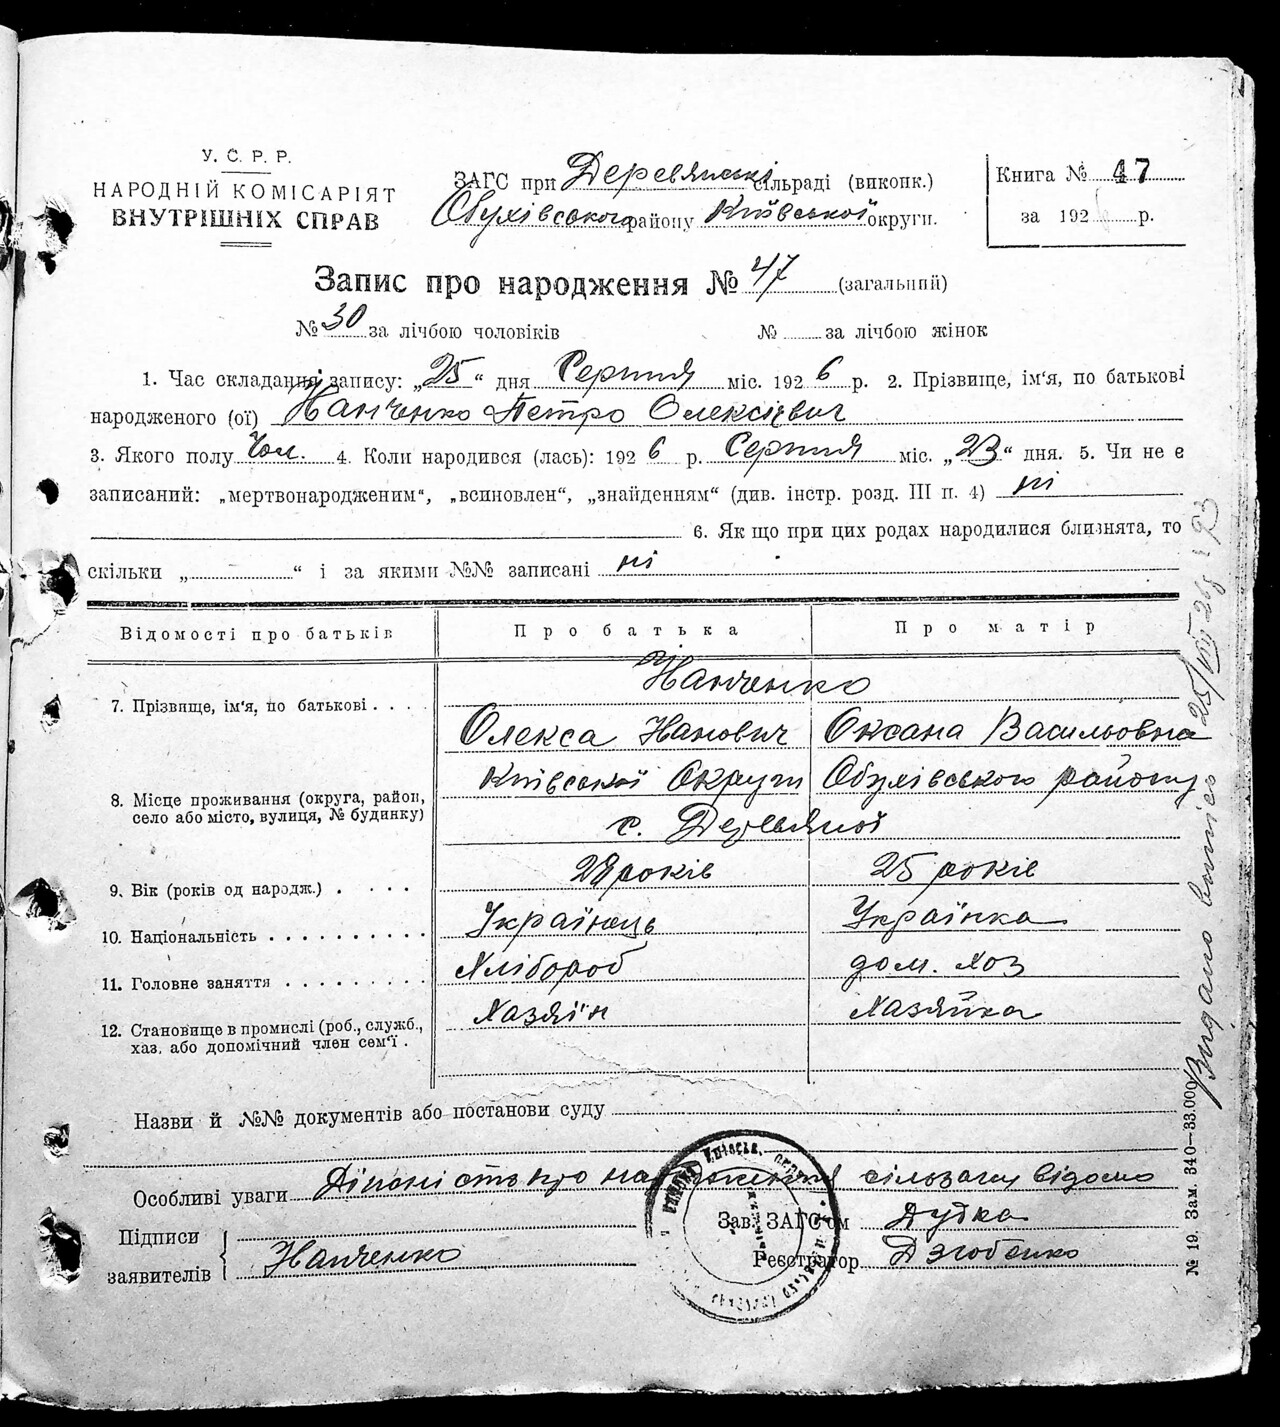 У. С. Р. Р.
НАРОДНІЙ КОМІСАРІЯТ
ВНУТРІШНІХ СПРАВ
ЗАГС при Деревянські сільраді (виконк.)
Обухівського району Київської округи.
Книга № 47
за 192 р.
Запис про народження № 47 (загальний)
№ 30 за лічбою чоловіків № за лічбою жінок
1. Час складання запису: „25“ дня Серпня міс. 1926 р. 2. Прізвище, ім'я, по батькові
народженого (ої) Іванченко Петро Олексієвич
3. Якого полу Чол. 4. Коли народився (лась): 1926 р. Серпня міс. „23“ дня. 5. Чи не є
записаний: „мертвонародженим“, „всиновлен“, „знайденням“ (див. інстр. розд. III п. 4) ні
6. Як що при цих родах народилися близнята, то
скільки „ “ і за якими №№ записані ні
Відомості про батьків Про батька Про матір
7. Прізвище, ім'я, по батькові . . . . Іванченко
Олекса Іванович Оксана Васильовна
8. Місце проживання (округа, район, село або місто, вулиця, № будинку) Київської Округи Обухівського району
с. Деревяної
9. Вік (років од народж.) . . . . 28 років 25 років
10. Національність . . . . . . . . . . Українець Українка
11. Головне заняття . . . . . . . . . Хлібороб дом. хоз
12. Становище в промислі (роб., служб., хаз. або допомічний член сем'ї . Хазяїн Хазяйка
Назви й №№ документів або постанови суду
Особливі уваги про народження сільраді відомо
Підписи
заявителів Іванченко
Зав. ЗАГС'ом Дудка
Реєстратор Дзюбенко
№ 19. Зам. 340–33.000
Видано 25/VIII 26 р